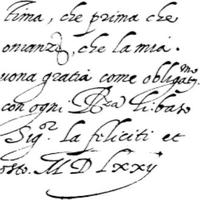 tima, che prima che
onianza, che la mia.
uona gratia come obligatmo
con ogni Rza li baso
Sigor la feliciti et
osto. M D Lxxij